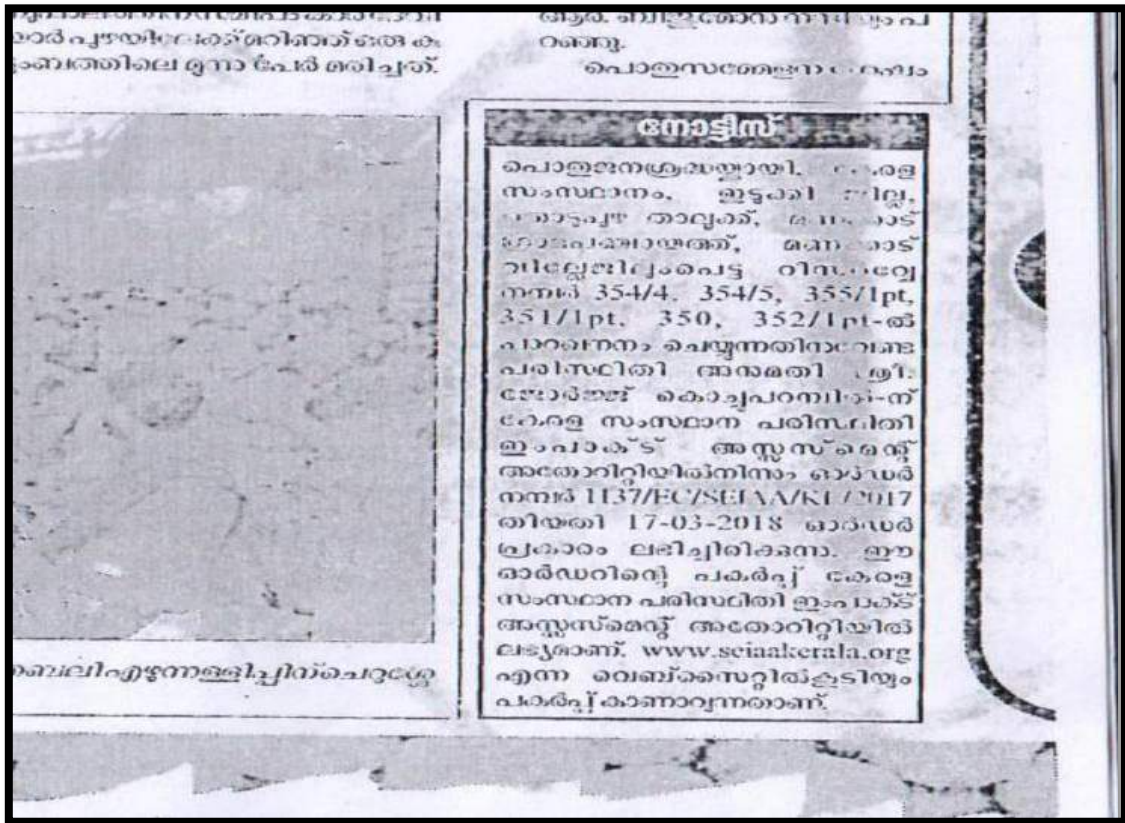 യാർ പുഴയിലേക്ക് മറിഞ്ഞ് ഒരു കു
ടുംബത്തിലെ മൂന്നു പേർ മരിച്ചത്.
റഞ്ഞു.
പൊതുസമ്മേളന
നോട്ടീസ്
പൊതുജനശ്രദ്ധയ്ക്കായി, കേരള
സംസ്ഥാനം, ഇടുക്കി ജില്ല,
തൊടുപുഴ താലൂക്ക്, മണക്കാട്
ഗ്രാമപഞ്ചായത്ത്, മണക്കാട്
വില്ലേജിലുംപെട്ട റീസർവ്വേ
നമ്പർ 354/4, 354/5, 355/1pt,
351/1pt, 350, 352/1pt-ൽ
പാറഖനനം ചെയ്യുന്നതിനുവേണ്ട
പരിസ്ഥിതി അനുമതി ശ്രീ.
ജോർജ്ജ് കൊച്ചുപറമ്പിൽ-ന്
കേരള സംസ്ഥാന പരിസ്ഥിതി
ഇംപാക്ട് അസ്സസ്മെന്റ്
അതോറിറ്റിയിൽനിന്നും ഓർഡർ
നമ്പർ 1137/EC/SEIAA/KL/2017
തിയതി 17-03-2018 ഓർഡർ
പ്രകാരം ലഭിച്ചിരിക്കുന്നു. ഈ
ഓർഡറിന്റെ പകർപ്പ് കേരള
സംസ്ഥാന പരിസ്ഥിതി ഇംപാക്ട്
അസ്സസ്മെന്റ് അതോറിറ്റിയിൽ
ലഭ്യമാണ്. www.seiaakerala.org
എന്ന വെബ്സൈറ്റിൽകൂടിയും
പകർപ്പ് കാണാവുന്നതാണ്.